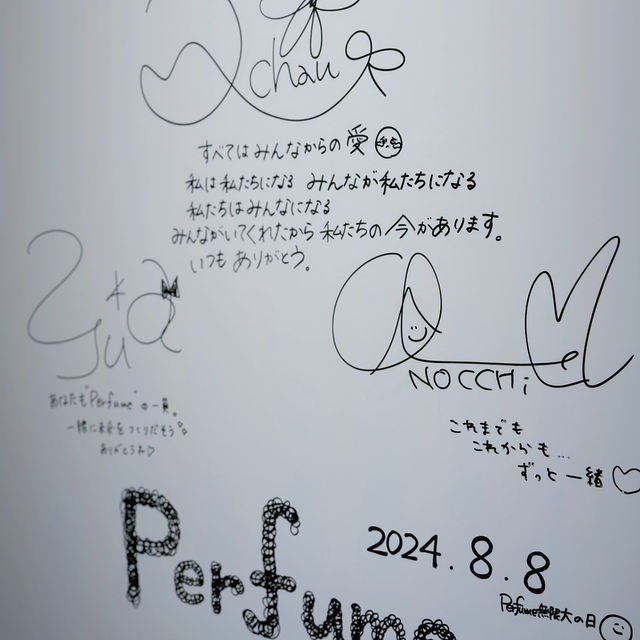 chan
すべてはみんなからの愛
私は私たちになる みんなが私たちになる
私たちはみんなになる
みんながいてくれたから 私たちの今があります。
いつも ありがとう。
NOCCHi
あなたも"Perfume"の一員。
一緒に未来をつくりだそう
ありがとうね
これまでも
これからも…
ずっと一緒
Perfume
2024.8.8
Perfume無限大の日